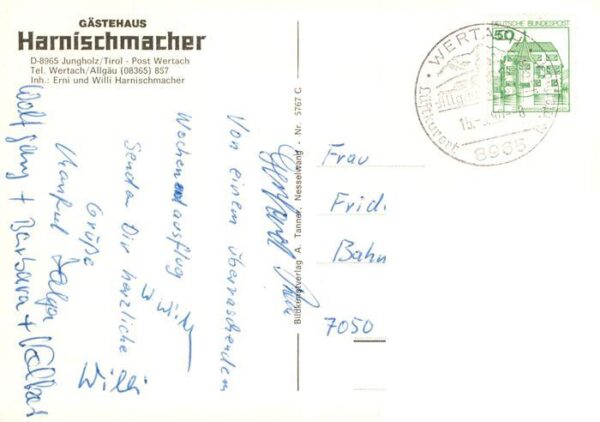 GÄSTEHAUS
Harnischmacher
D-8965 Jungholz/Tirol - Post Wertach
Tel. Wertach/Allgäu (08365) 857
Inh.: Erni und Willi Harnischmacher
Von einem überraschenden
Wochenendausflug
senden Dir herzliche
Grüße
Willi
Manfred Helga
Wolfgang + Barbara +
Bildkunstverlag A. Tanner, Nesselwang - Nr. 5767 C
DEUTSCHE BUNDESPOST
50
WERTACH
Luftkurort
8965
Frau
Frid
Bahn
7050